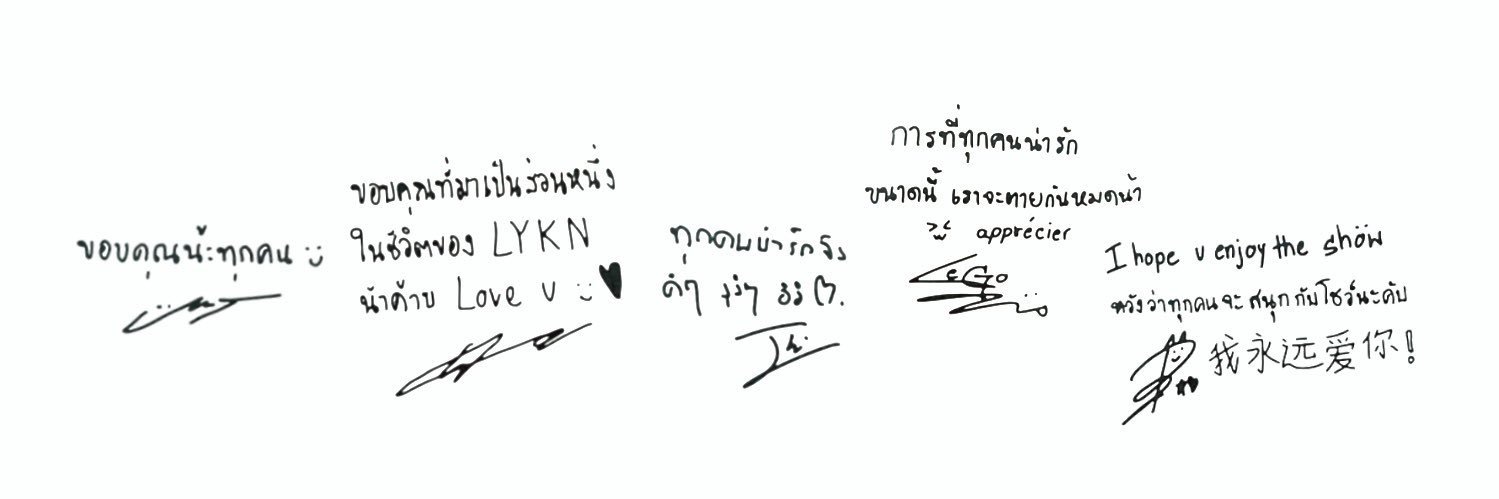 ขอบคุณน้ะทุกคน
ขอบคุณที่มาเป็นส่วนหนึ่ง
ในชีวิตของ LYKN
น้าค้าบ Love u
ทุกคนน่ารัก
การที่ทุกคนน่ารัก
ขนาดนี้ เราจะตายกันหมดน้า
apprécier
LeGo
I hope u enjoy the show
หวังว่าทุกคนจะสนุกกับโชว์นะคับ
我永远爱你!